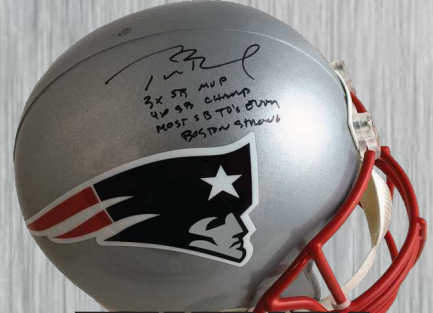 3x SB MVP
4x SB CHAMP
MOST SB TD's EVER
BOSTON STRONG